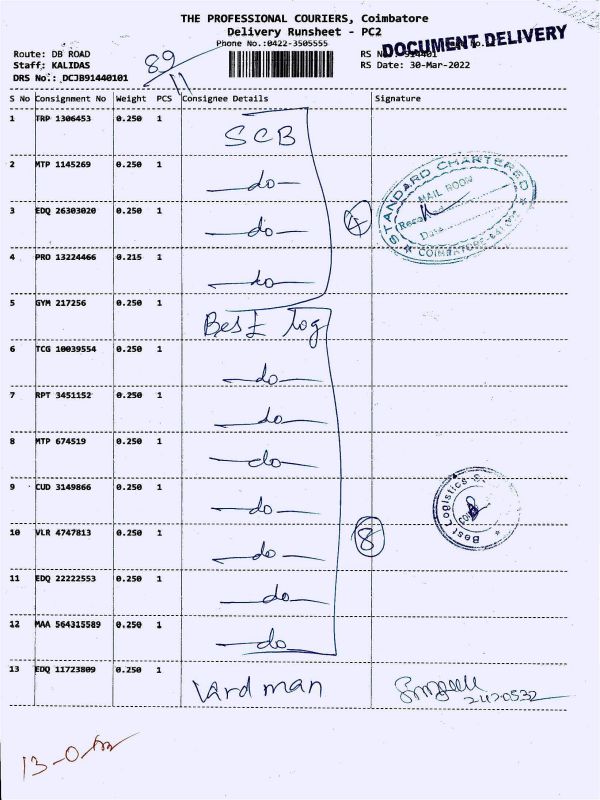 THE PROFESSIONAL COURIERS, Coimbatore
Delivery Runsheet - PC2
Phone No.:0422-3505555
DOCUMENT DELIVERY
Route: DB ROAD
Staff: KALIDAS
DRS No.: DCJB91440101
89
11
RS Date: 30-Mar-2022
S No Consignment No Weight PCS Consignee Details Signature
1 TRP 1306453 0.250 1 SCB
2 MTP 1145269 0.250 1 —do—
3 EDQ 26303020 0.250 1 —do—
4
4 PRO 13224466 0.215 1 —do—
STANDARD CHARTERED
MAIL ROOM
Date
COIMBATORE
5 GYM 217256 0.250 1 Best log
6 TCG 10039554 0.250 1 —do—
7 RPT 3451152 0.250 1 —do—
8 MTP 674519 0.250 1 —do—
9 CUD 3149866 0.250 1 —do—
Best Logistics
10 VLR 4747813 0.250 1 —do—
8
11 EDQ 22222553 0.250 1 —do—
12 MAA 564315589 0.250 1 —do—
13 EDQ 11723809 0.250 1 Vardman